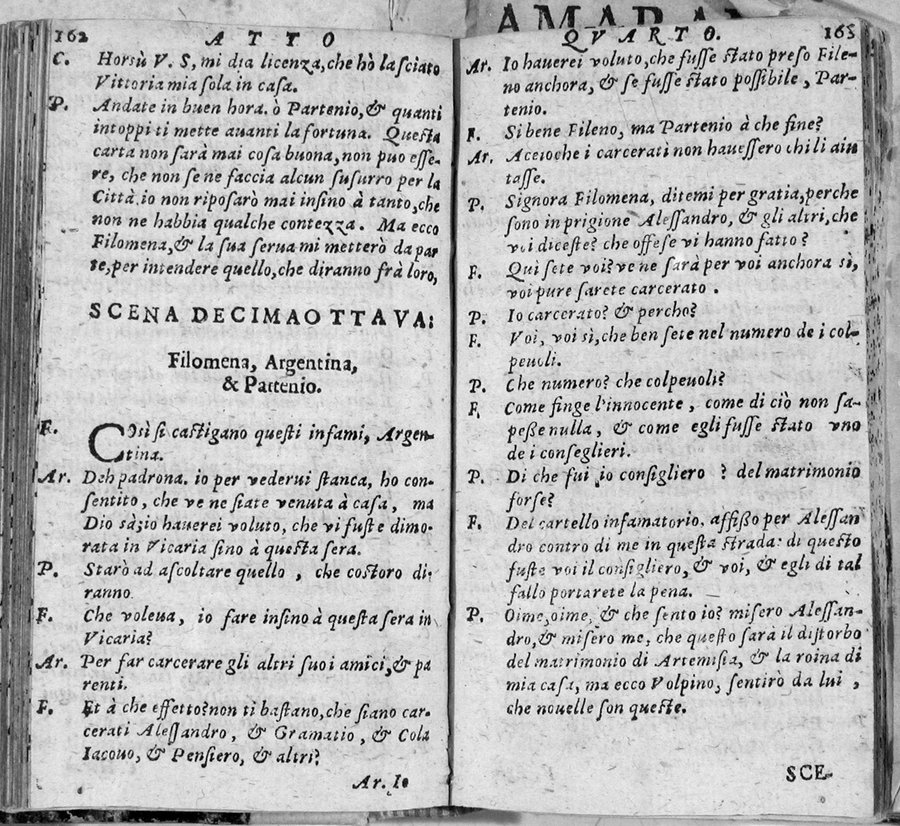 AMARAN
162 ATTO
C. Horsù V. S, mi dia licenza, che hò lasciato
Vittoria mia sola in casa.
P. Andate in buen hora. ò Partenio, & quanti
intoppi ti mette auanti la fortuna. Questa
carta non sarà mai cosa buona, non puo esse-
re, che non se ne faccia alcun susurro per la
Città. io non riposarò mai insino à tanto, che
non ne habbia qualche contezza. Ma ecco
Filomena, & la sua serua mi metterò da par
te, per intendere quello, che diranno frà loro,
SCENA DECIMAOTTAVA:
Filomena, Argentina,
& Partenio.
F. Così si castigano questi infami, Argen-
tina.
Ar. Deh padrona. io per vederui stanca, ho con-
sentito, che ve ne siate venuta à casa, ma
Dio sà; io hauerei voluto, che vi fuste dimo-
rata in Vicaria sino à questa sera.
P. Starò ad ascoltare quello, che costoro di-
ranno
F. Che voleua, io fare insino à questa sera in
Vicaria?
Ar. Per far carcerare gli altri suoi amici, & pa
renti.
F. Et à che effetto? non ti bastano, che siano car-
cerati Alessandro, & Gramatio, & Cola
Iacouo, & Pensiero, & altri?
Ar. Io
QVARTO. 163
Ar. Io hauerei voluto, che fusse stato preso File-
no anchora, & se fusse stato possibile, Par-
tenio.
F. Si bene Fileno, ma Partenio à che fine?
Ar. Accioche i carcerati non hauessero chi li aiu
tasse.
P. Signora Filomena, ditemi per gratia, perche
sono in prigione Alessandro, & gli altri, che
voi diceste? che offese vi hanno fatto?
F. Qui sete voi? ve ne sarà per voi anchora sì,
voi pure sarete carcerato.
P. Io carcerato? & percho?
F. Voi, voi sì, che ben sete nel numero de i col-
peuoli.
P. Che numero? che colpeuoli?
F. Come finge l'innocente, come di ciò non sa-
peße nulla, & come egli fusse stato vno
de i conseglieri.
P. Di che fui io consigliero? del matrimonio
forse?
F. Del cartello infamatorio, affißo per Alessan
dro contro di me in questa strada: di questo
fuste voi il consigliero, & voi, & egli di tal
fallo portarete la pena.
P. Oime, oime, & che sento io? misero Alessan-
dro, & misero me, che questo sarà il distorbo
del matrimonio di Artemisia, & la roina di
mia casa, ma ecco Volpino, sentirò da lui,
che nouelle son queste.
SCE-